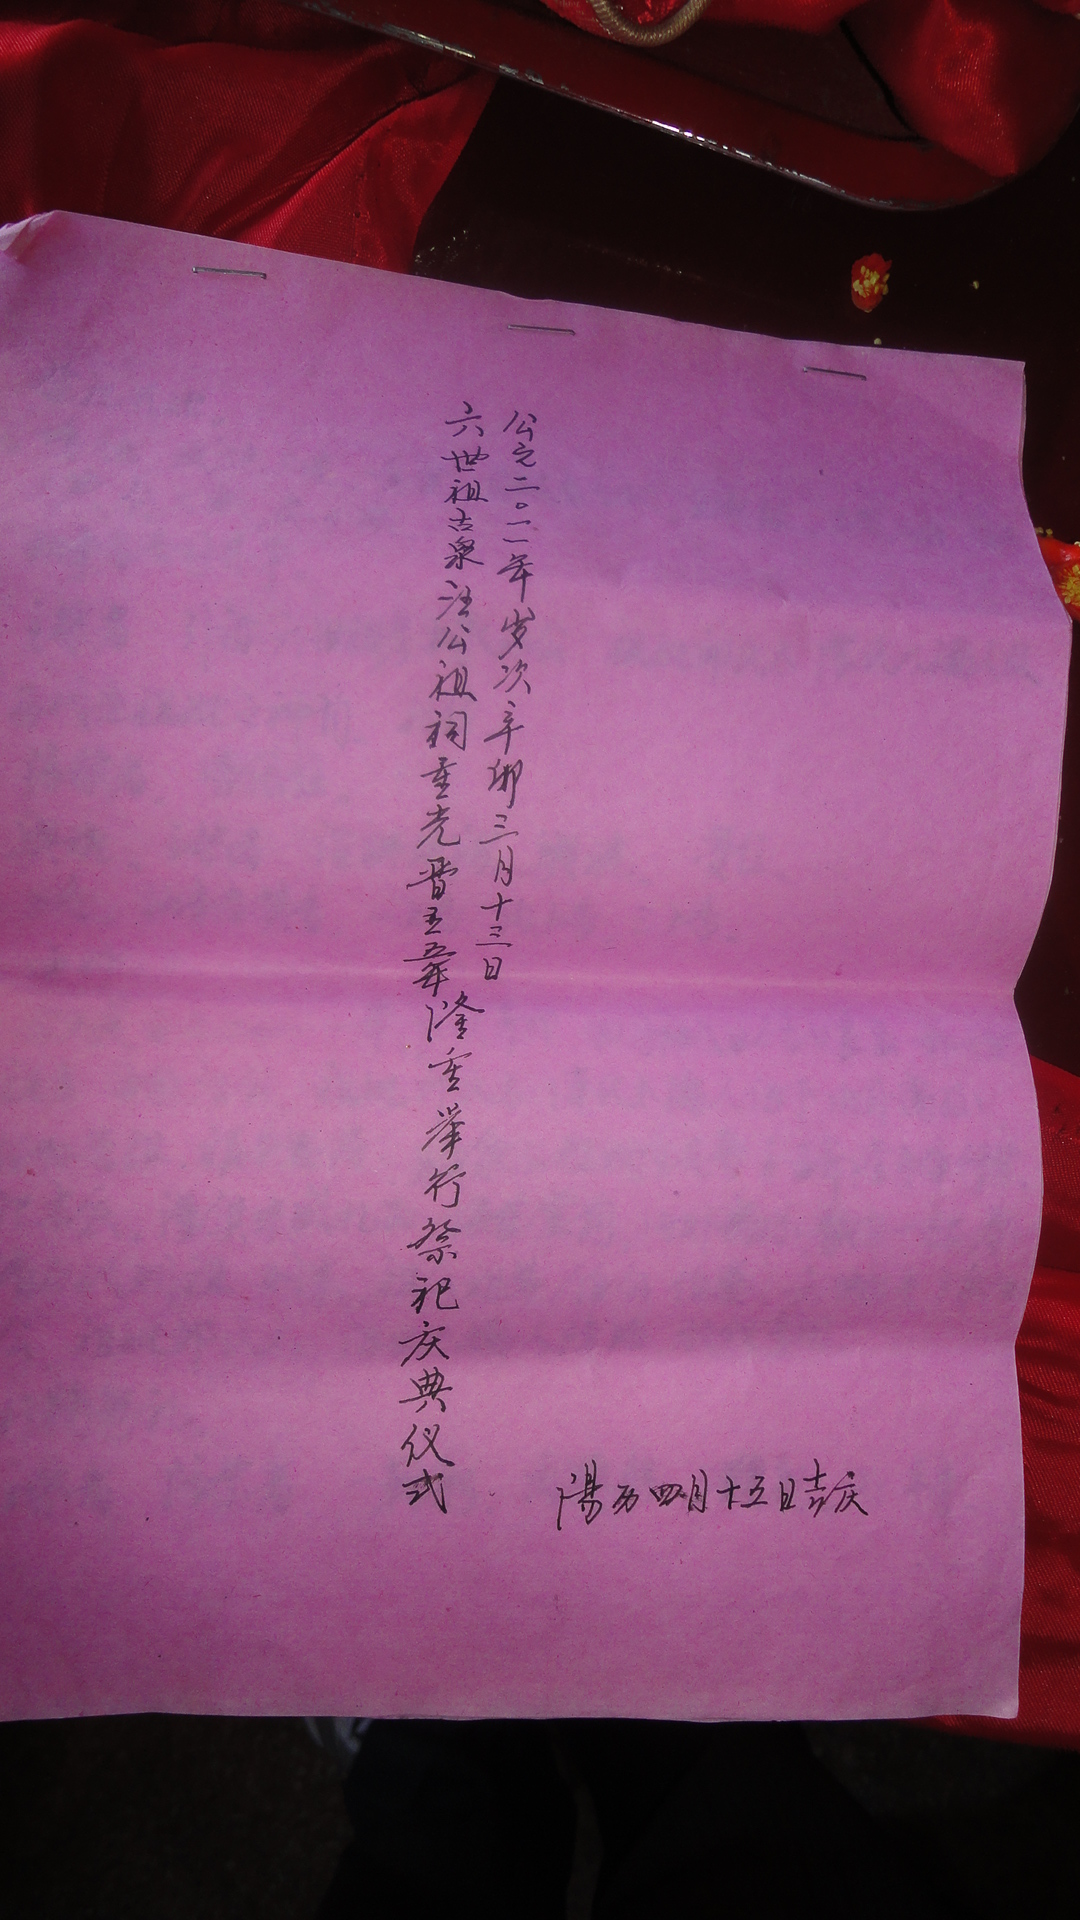 公元二〇一一年岁次辛卯三月十三日
六世祖古泉汪公祖祠重光晋五五年隆重举行祭祀庆典仪式
陽历四月十五日吉庆